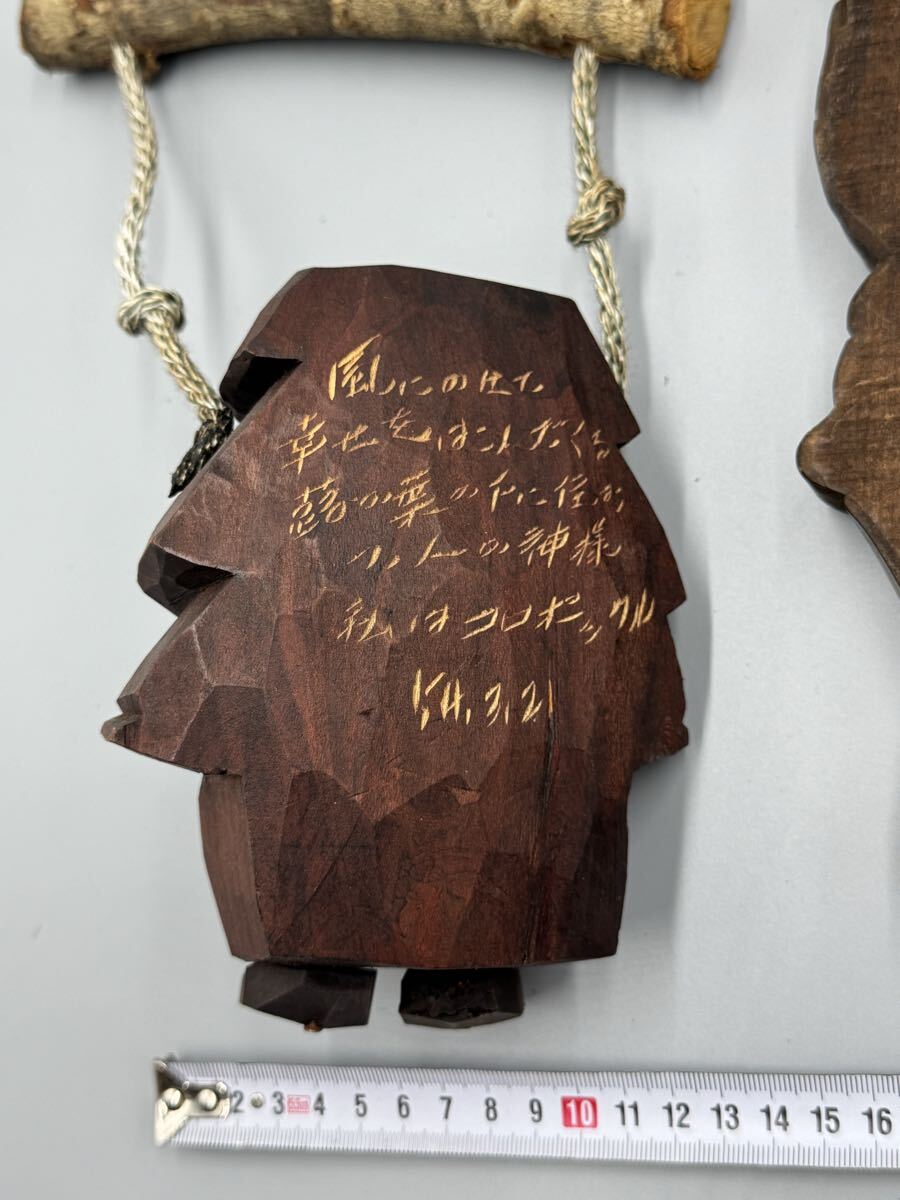 風にのせて
幸せをはこんだくる
蕗の葉の下に住む
小人の神様
私はコロボックル
54.3.21
2 3 4 5 6 7 8 9 10 11 12 13 14 15 16